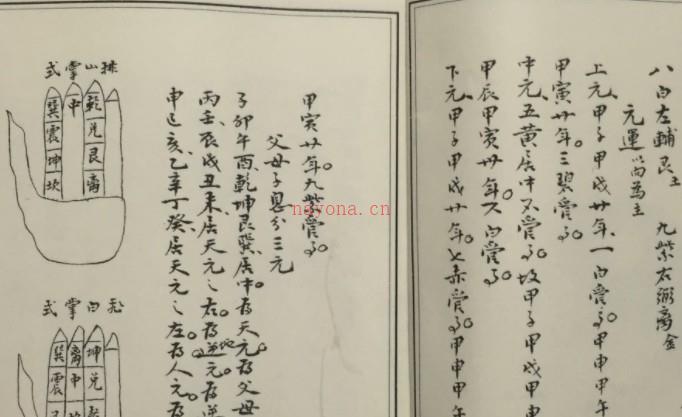 八白左輔艮土 九紫右弼离金
元運以向為主
上元甲子甲戌廿年一白管。甲申甲午
甲寅廿年三碧管。
中元五黃居中不管。故甲子甲戌甲申
甲辰甲寅廿年六白管。
下元甲子甲戌廿年七赤管。甲申甲午
甲寅廿年九紫管。
父母子息分三元
子卯午酉乾坤艮巽居中。為天元為父母
丙壬辰戌丑未居天元之右。為地元為逆
申巳亥乙辛丁癸居天元之左。為人元為
排山掌式
乾兌艮离
中
巽震坤坎
元白掌式
坤兌乾
离中坎
巽震
nayona.cn